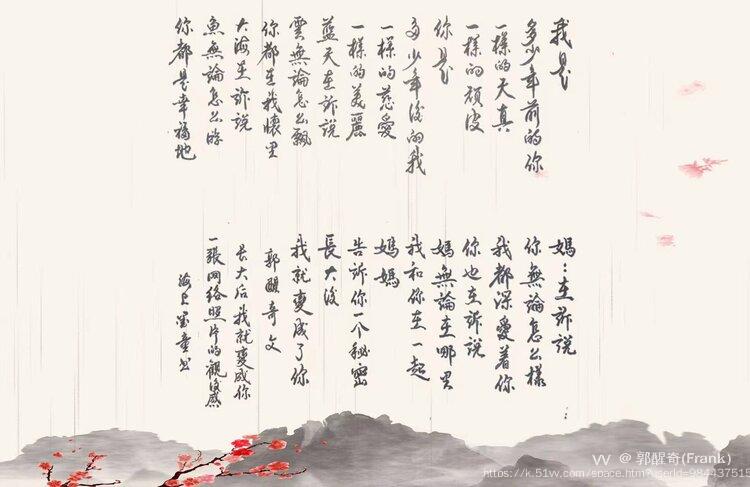 我是
多少年前的你
一樣的天真
一樣的頑皮
你是
多少年後的我
一樣的慈愛
一樣的美麗
藍天在訴說
雲無論怎么飄
你都在我懷里
大海在訴說
魚無論怎么游
你都是幸福地
媽:在訴說
你無論怎么樣
我都深愛着你
你也在訴說
媽無論在哪里
我和你在一起
媽媽
告訴你一个秘密
長大後
我就變成了你
郭醒奇文
長大后我就變成你
一張网络照片的觀后感
海上童书
VV @ 郭醒奇(Frank)
https://k.51vv.com/space.htm?userId=984437515